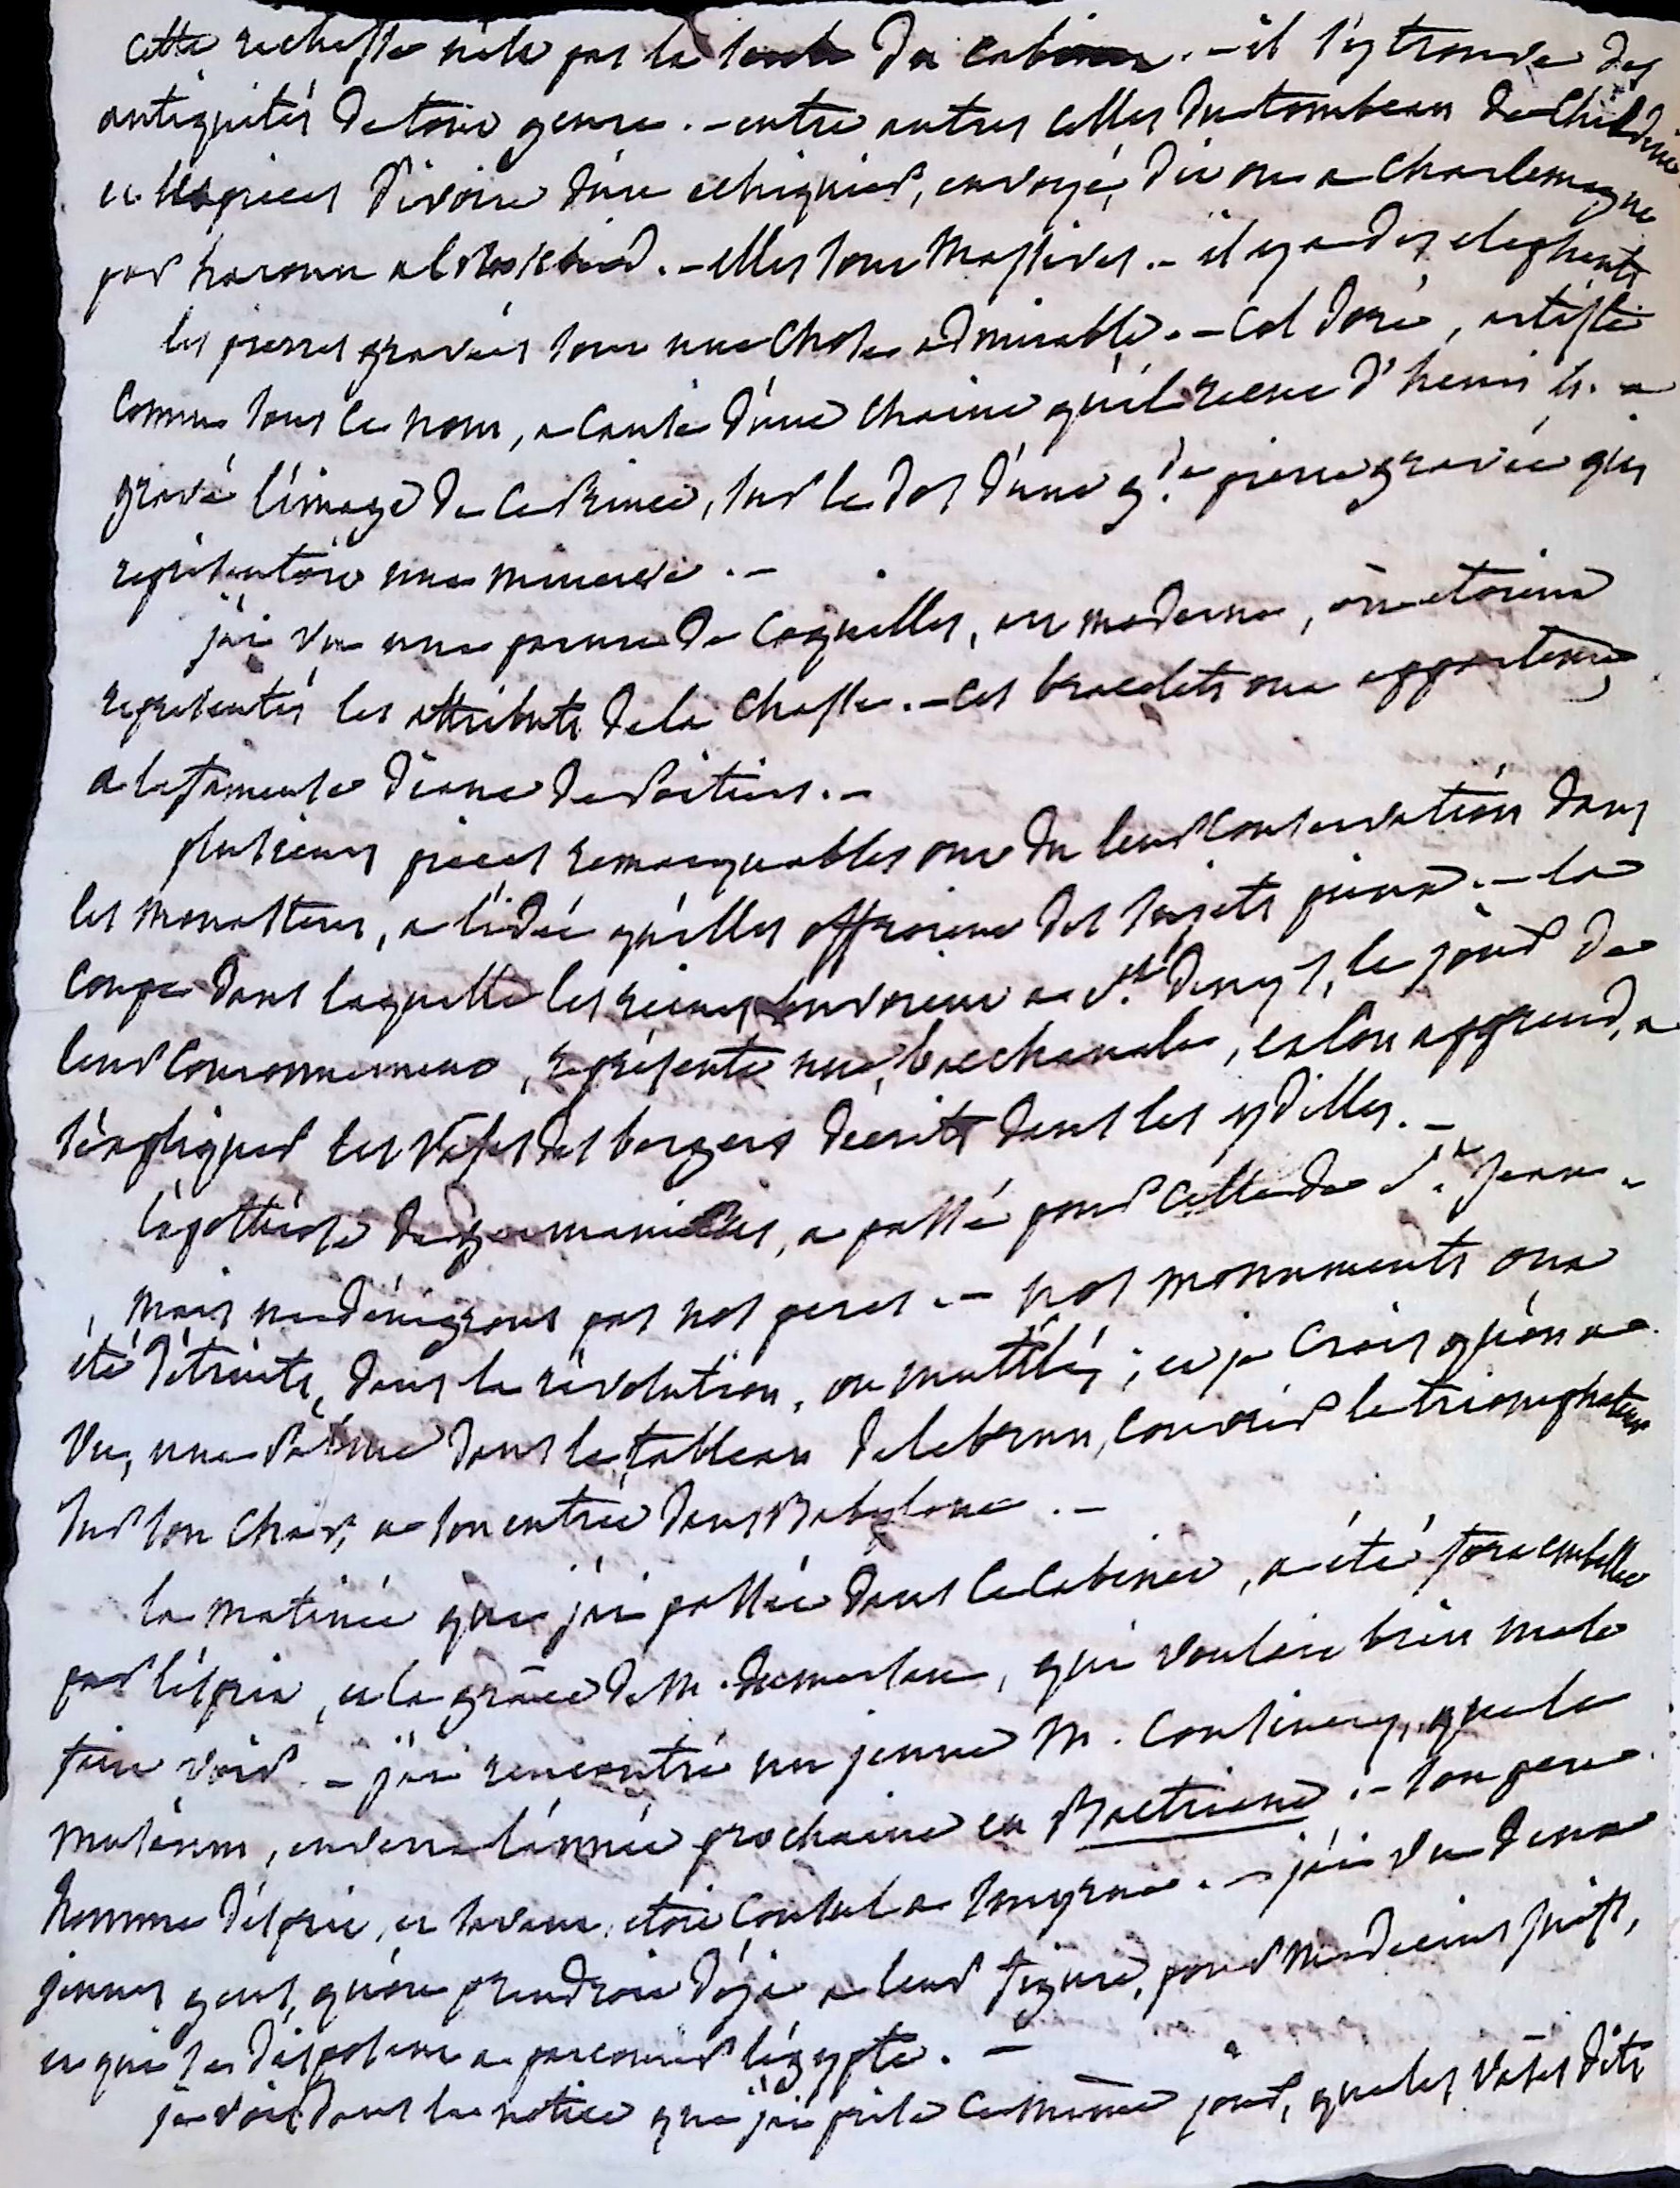 cette richesse n'est pas la seule du cabinet. - il s'y trouve des
antiquités de tout genre. - entre autres celles du tombeau de Childeric
et les pièces d'ivoire d'un echiquier, envoyé, dit on a Charlemagne
par haroun al raschid. - elles sont massives. - il y a des elephants
les pierres gravées sont une chose admirable. - Col doré, artiste
connu sous ce nom, a cause d'une chaine qu'il reçut d'henri 4. a
gravé l'image de ce Prince, sur le dos d'une g.de pierre gravée qui
représentoit une minerve. -
j'ai vu une parure de Coquilles, ou moderne, où etoient
representés les attributs de la chasse. - ces bracelets ont appartenu,
a la fameuse diane de Poitiers. -
plusieurs pièces remarquables ont du leur conservation dans
les monasteres, a l'idée qu'elles offroient des sujets pieux. - la
coupe dans laquelle les reines buvoient a St. denys, le jour de
leur couronnement, représente une bacchanale, et l'on apprend, a
s'expliquer les vases des bergers décrits dans les ydilles. -
l'apothéose de germanicus, a passé pour celle de St. Jean.
mais ne dénigrons pas nos peres. - nos monuments ont
été détruits, dans la révolution, ou mutilés; et je crois qu'on a
vu, une dans le tableau de lebrun, couvrir le triomphateur
sur son char, a son entrée dans Babylone. -
la matinée que j'ai passée dans ce Cabinet, a été fort embellie
par l'esprit, et la grâce de M. dumersan, qui vouloit bien me le
faire voir. - j'ai rencontré un jeune M. Cousinery, que le
muséum, enverra l'année prochaine en Bactriane. - son pere
homme d'esprit, et savant, etoit Consul a Smyrne. - j'ai vu deux
jeunes gens, qu'on prendroit déja a leur figure, pour médecins juifs,
et qui se disposent a parcourir l'égypte. -
je vois dans la notice que j'ai prise ce même jour, que les vases dits